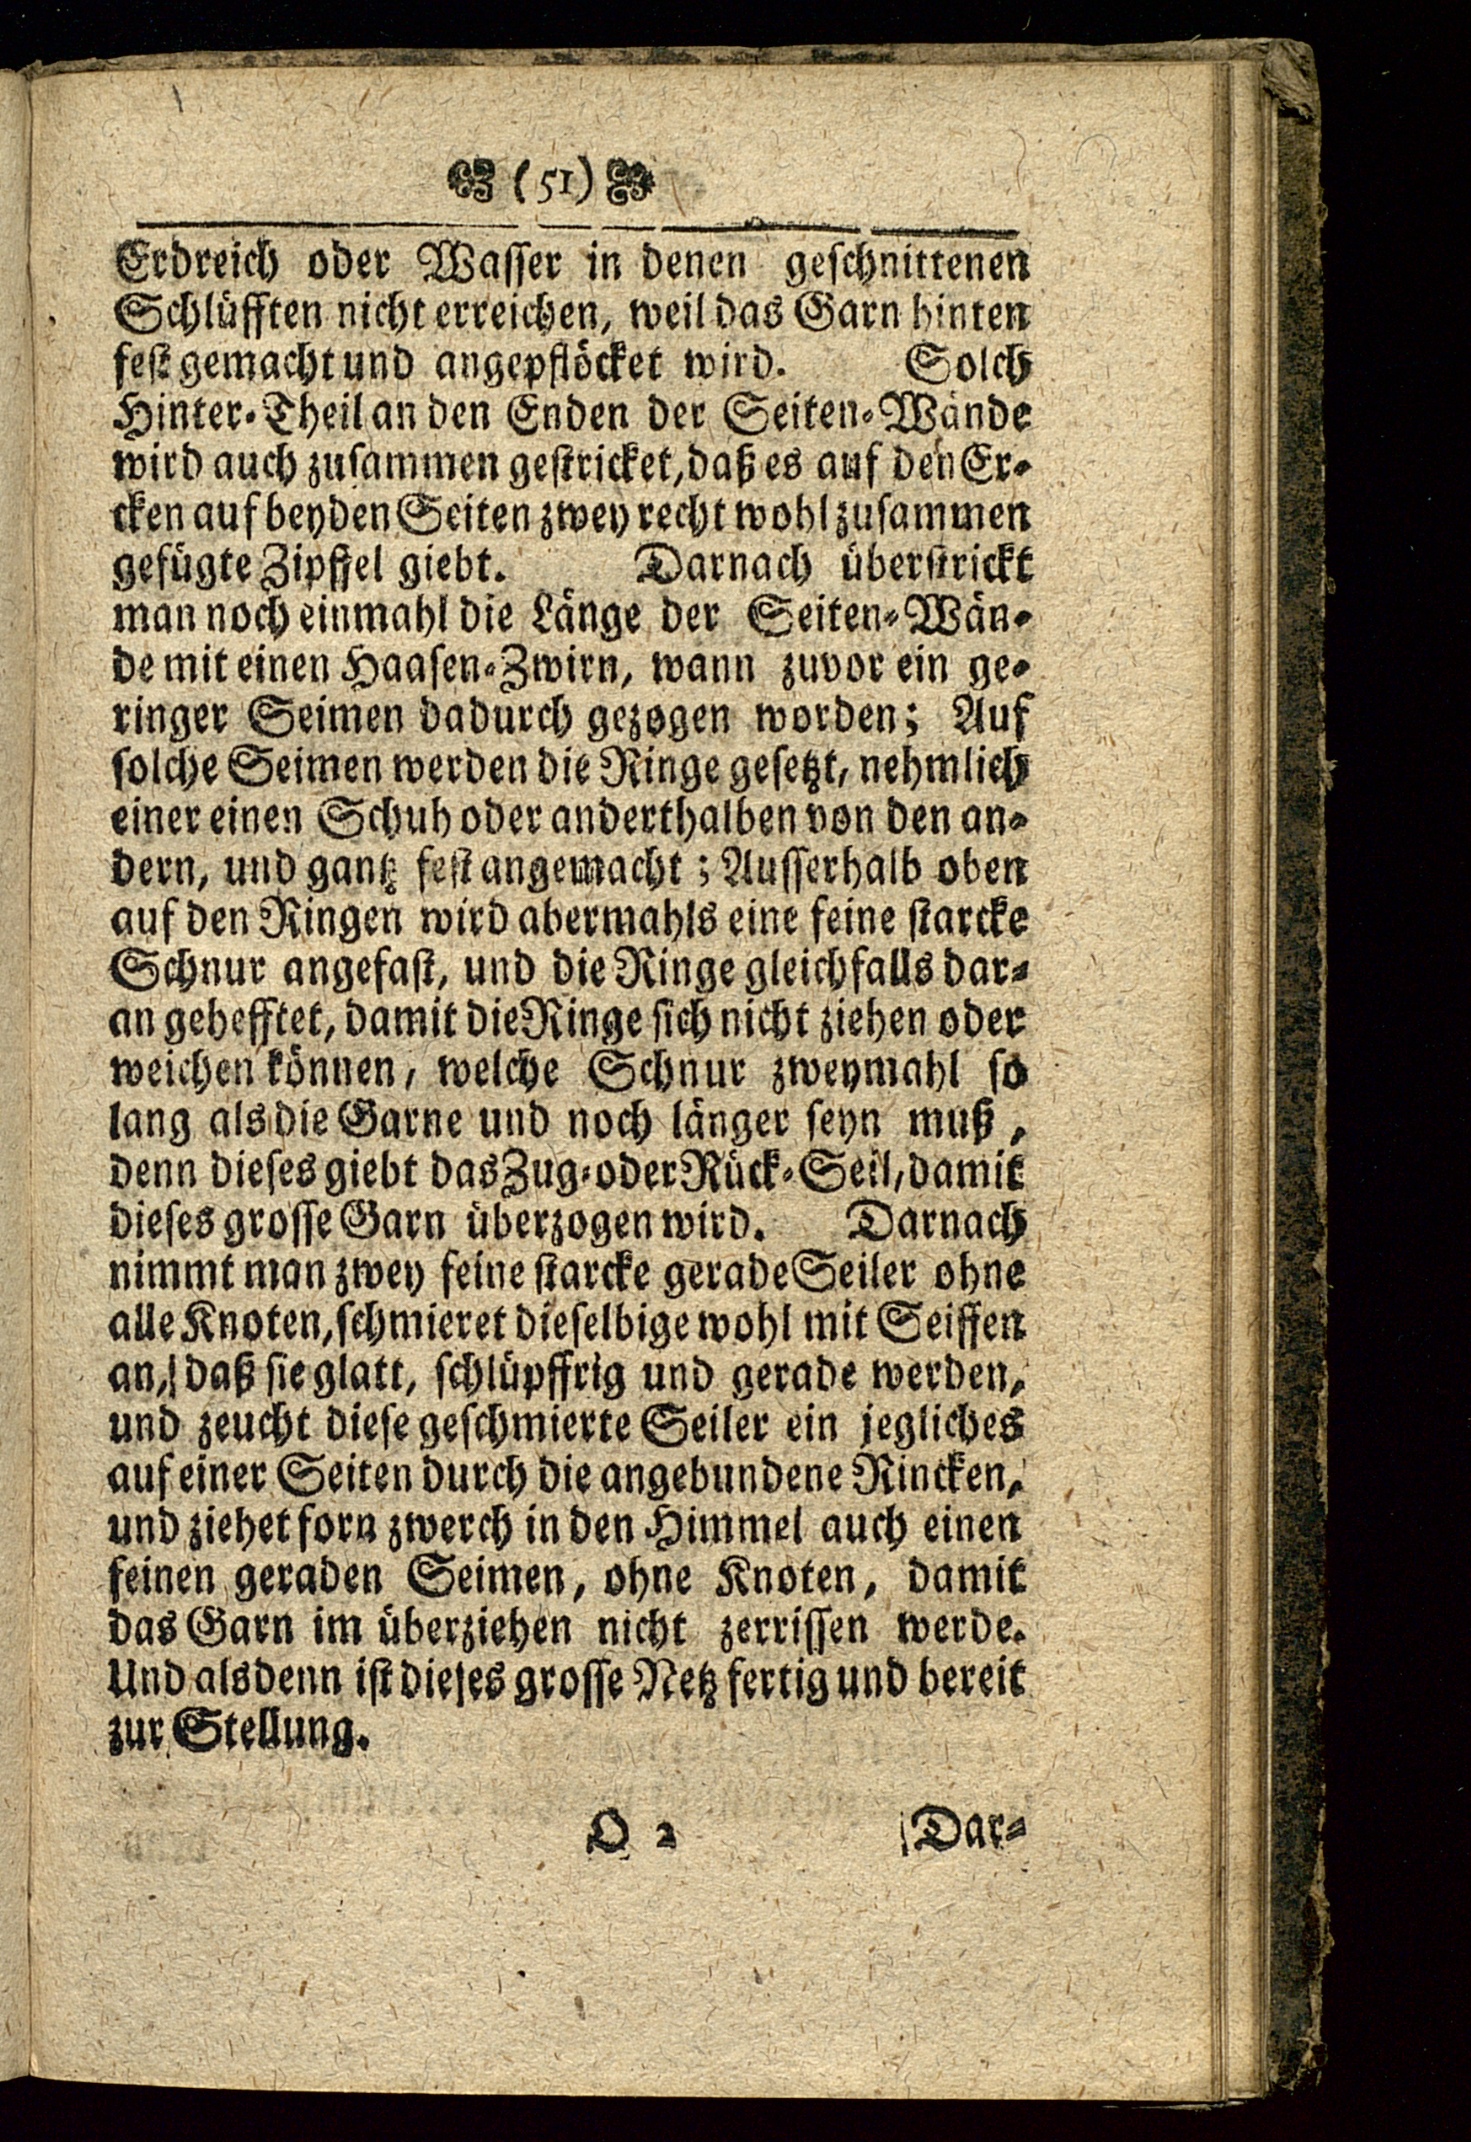 (51)
Erdreich oder Wasser in denen geschnittenen
Schlüfften nicht erreichen, weil das Garn hinten
fest gemacht und angepflöcket wird. Solch
Hinter-Theil an den Enden der Seiten-Wände
wird auch zusammen gestricket, daß es auf den Er-
cken auf beyden Seiten zwey recht wohl zusammen
gefügte Zipffel giebt. Darnach überstrickt
man noch einmahl die Länge der Seiten-Wän-
de mit einen Haasen-Zwirn, wann zuvor ein ge-
ringer Seimen dadurch gezogen worden; Auf
solche Seimen werden die Ringe gesetzt, nehmlich
einer einen Schuh oder anderthalben von den an-
dern, und gantz fest angemacht; Ausserhalb oben
auf den Ringen wird abermahls eine feine starcke
Schnur angefast, und die Ringe gleichfalls dar-
an gehefftet, damit die Ringe sich nicht ziehen oder
weichen können, welche Schnur zweymahl so
lang als die Garne und noch länger seyn muß,
denn dieses giebt das Zug- oder Rück-Seil, damit
dieses grosse Garn überzogen wird. Darnach
nimmt man zwey feine starcke gerade Seiler ohne
alle Knoten, schmieret dieselbige wohl mit Seiffen
an, daß sie glatt, schlüpffrig und gerade werden,
und zeucht diese geschmierte Seiler ein jegliches
auf einer Seiten durch die angebundene Rincken,
und ziehet forn zwerch in den Himmel auch einen
feinen geraden Seimen, ohne Knoten, damit
das Garn im überziehen nicht zerrissen werde.
Und alsdenn ist dieses grosse Netz fertig und bereit
zur Stellung.
D 2 Dar-